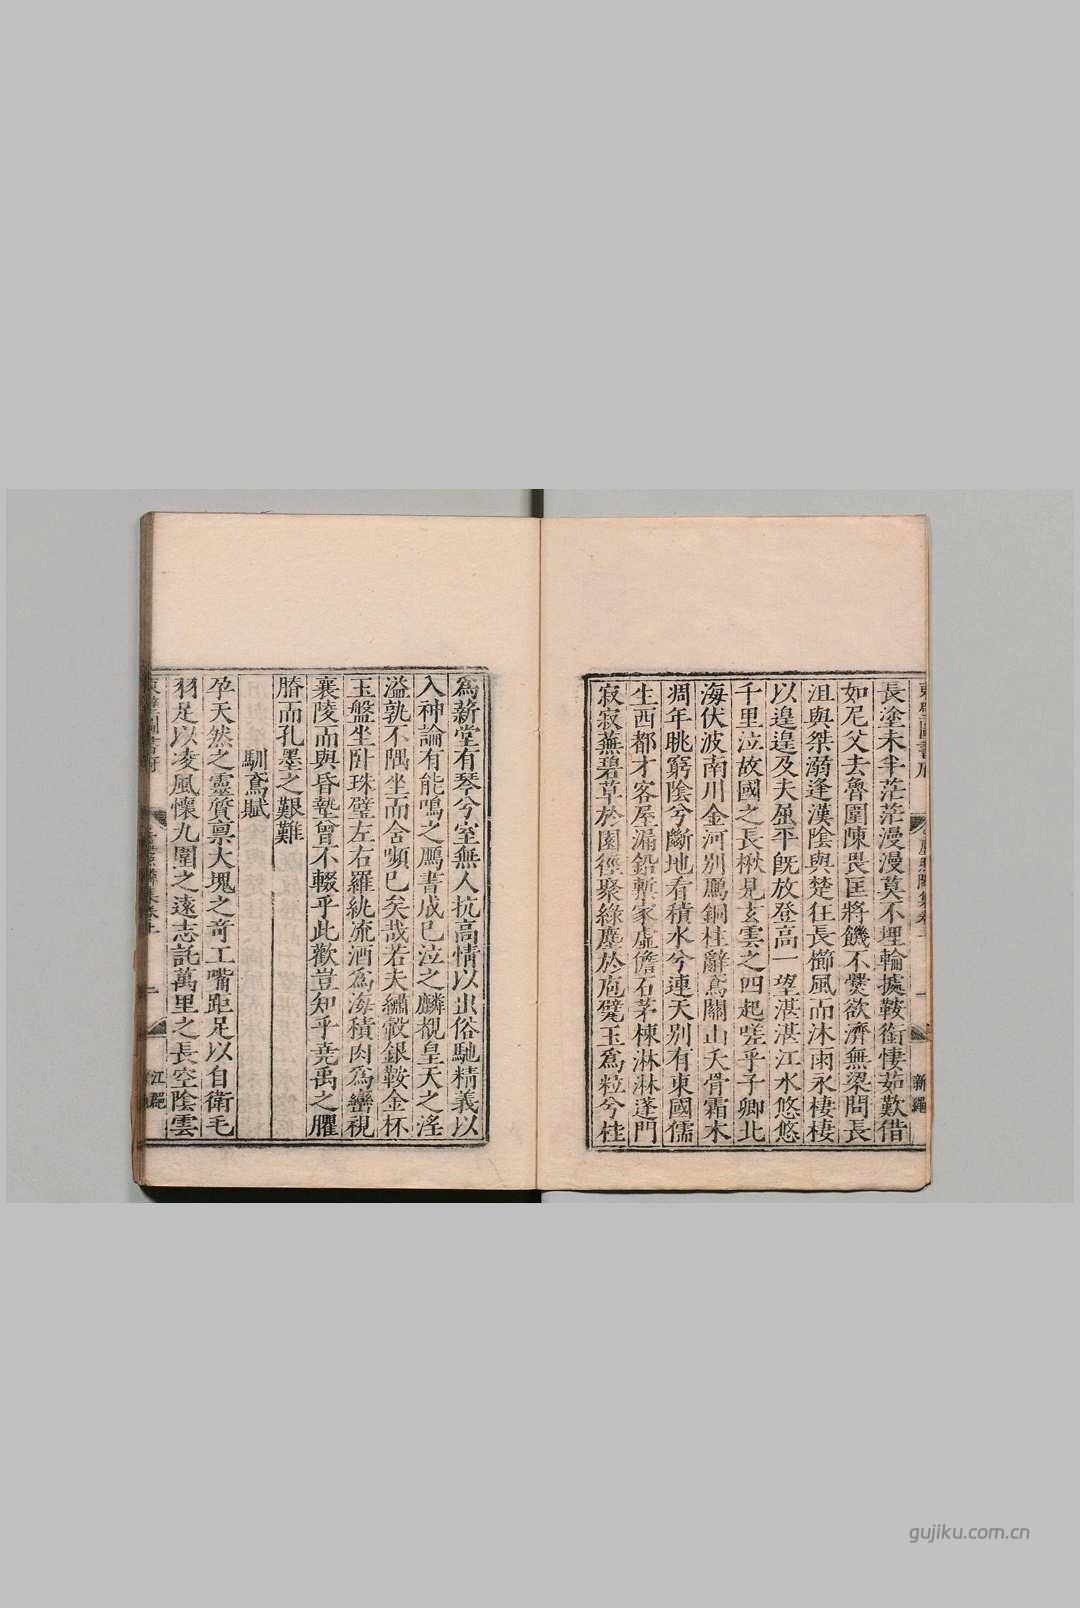 長塗未半茫茫漫漫莫不埋輪據鞍銜悽茹歎借
如尼父去魯圍陳畏匡將饑不爨欲濟無梁問長
沮與桀溺逢漢陰與楚狂長櫛風而沐雨永棲棲
以遑遑及夫屈平旣放登高一望湛湛江水悠悠
千里泣故國之長楸見玄雲之四起嗟乎子卿北
海伏波南川金河別鴈銅柱辭鳶關山夭骨霜木
凋年眺窮陰兮斷地看積水兮連天別有東國儒
生西都才客屋漏鉛槧家虛儋石茅棟淋淋蓬門
寂寂蕪碧草於園徑聚綠塵於庖甓玉爲粒兮桂
爲薪堂有琴兮室無人抗高情以出俗馳精義以
入神論有能鳴之鴈書成已泣之麟覩皇天之淫
溢孰不隅坐而含嚬已矣哉若夫繡轂銀鞍金杯
玉盤坐臥珠璧左右羅紈流酒爲海積肉爲巒視
襄陵而與昏墊曾不輟乎此歡豈知乎堯禹之臞
膌而孔墨之艱難
馴鳶賦
孕天然之靈質稟大塊之奇工嘴距足以自衛毛
羽足以凌風懷九圍之遠志託萬里之長空陰雲
gujiku.com.cn